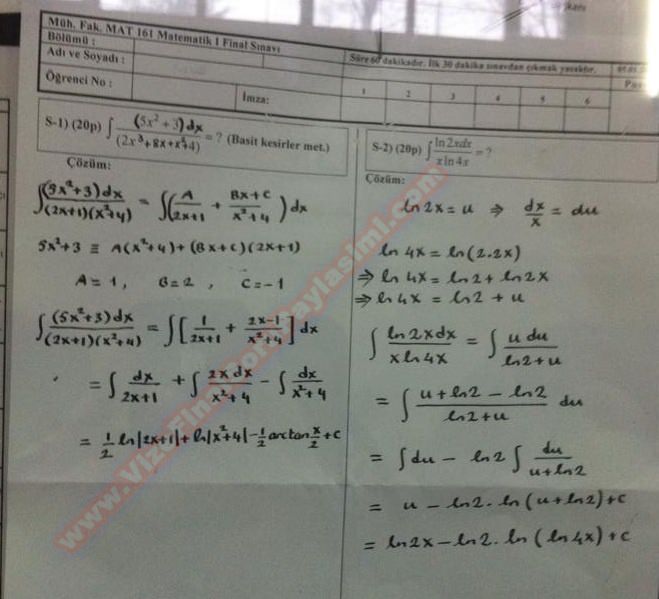 Müh. Fak. MAT 161 Matematik I Final Sınavı
Bölümü :
Adı ve Soyadı :
Öğrenci No :
İmza:
Süre 60 dakikadır. İlk 30 dakika sınavdan çıkmak yasaktır.
1 2 3 4 5 6
S-1) (20p) ∫ (5x² + 3)dx / (2x³ + 8x + x² + 4) = ? (Basit kesirler met.)
Çözüm:
∫ (5x²+3)dx / (2x+1)(x²+4) = ∫ ( A / 2x+1 + Bx+C / x²+4 ) dx
5x²+3 ≡ A(x²+4) + (Bx+C)(2x+1)
A = 1 , B = 2 , C = -1
∫ (5x²+3)dx / (2x+1)(x²+4) = ∫ [ 1 / 2x+1 + 2x-1 / x²+4 ] dx
= ∫ dx / 2x+1 + ∫ 2x dx / x²+4 - ∫ dx / x²+4
= 1/2 ln|2x+1| + ln|x²+4| - 1/2 arctan x/2 + C
S-2) (20p) ∫ ln 2xdx / x ln 4x = ?
Çözüm:
ln 2x = u ⇒ dx/x = du
ln 4x = ln(2.2x)
⇒ ln 4x = ln2 + ln2x
⇒ ln 4x = ln2 + u
∫ ln2xdx / x ln4x = ∫ u du / ln2+u
= ∫ u + ln2 - ln2 / ln2+u du
= ∫ du - ln2 ∫ du / u+ln2
= u - ln2 . ln(u+ln2) + C
= ln2x - ln2 . ln(ln4x) + C
www.VizeFinalSoruPaylasimi.com